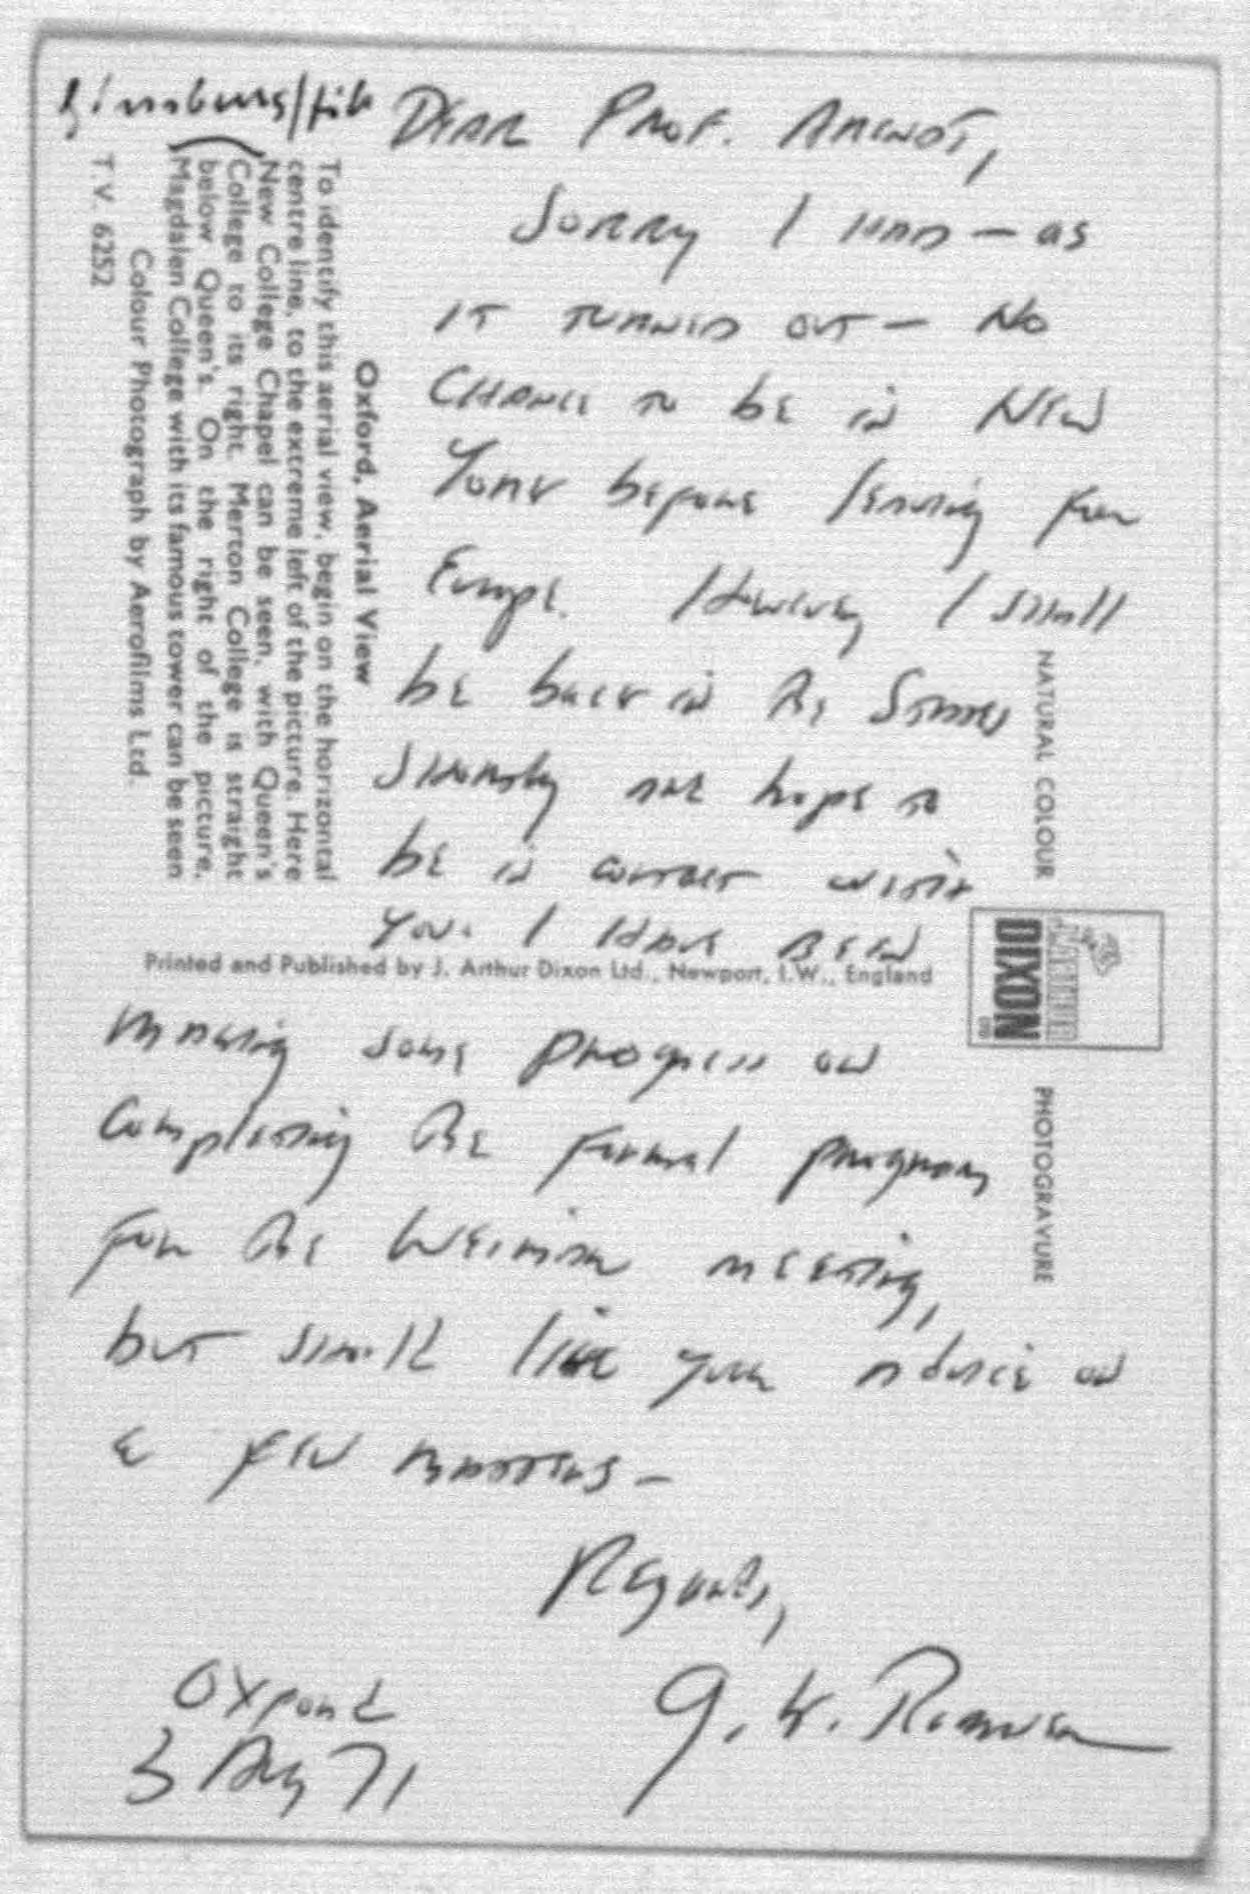 DEAR PROF. ARENDT,
SORRY I HAD — as
IT TURNED OUT — NO
CHANCE TO BE IN NEW
YORK BEFORE leaving for
Europe. However I shall
be back in the States
shortly and hope to
be in contact with
you. I HAVE BEEN
making some progress on
completing the formal program
for the Weimar meeting,
but should like your advice on
a few matters —
Regards,
Oxford
3 Aug 71
Oxford, Aerial View
To identify this aerial view, begin on the horizontal
centre line, to the extreme left of the picture. Here
New College Chapel can be seen, with Queen's
College to its right. Merton College is straight
below Queen's. On the right of the picture,
Magdalen College with its famous tower can be seen
Colour Photograph by Aerofilms Ltd.
T.V. 6252
Printed and Published by J. Arthur Dixon Ltd., Newport, I.W., England
NATURAL COLOUR
DIXON
PHOTOGRAVURE